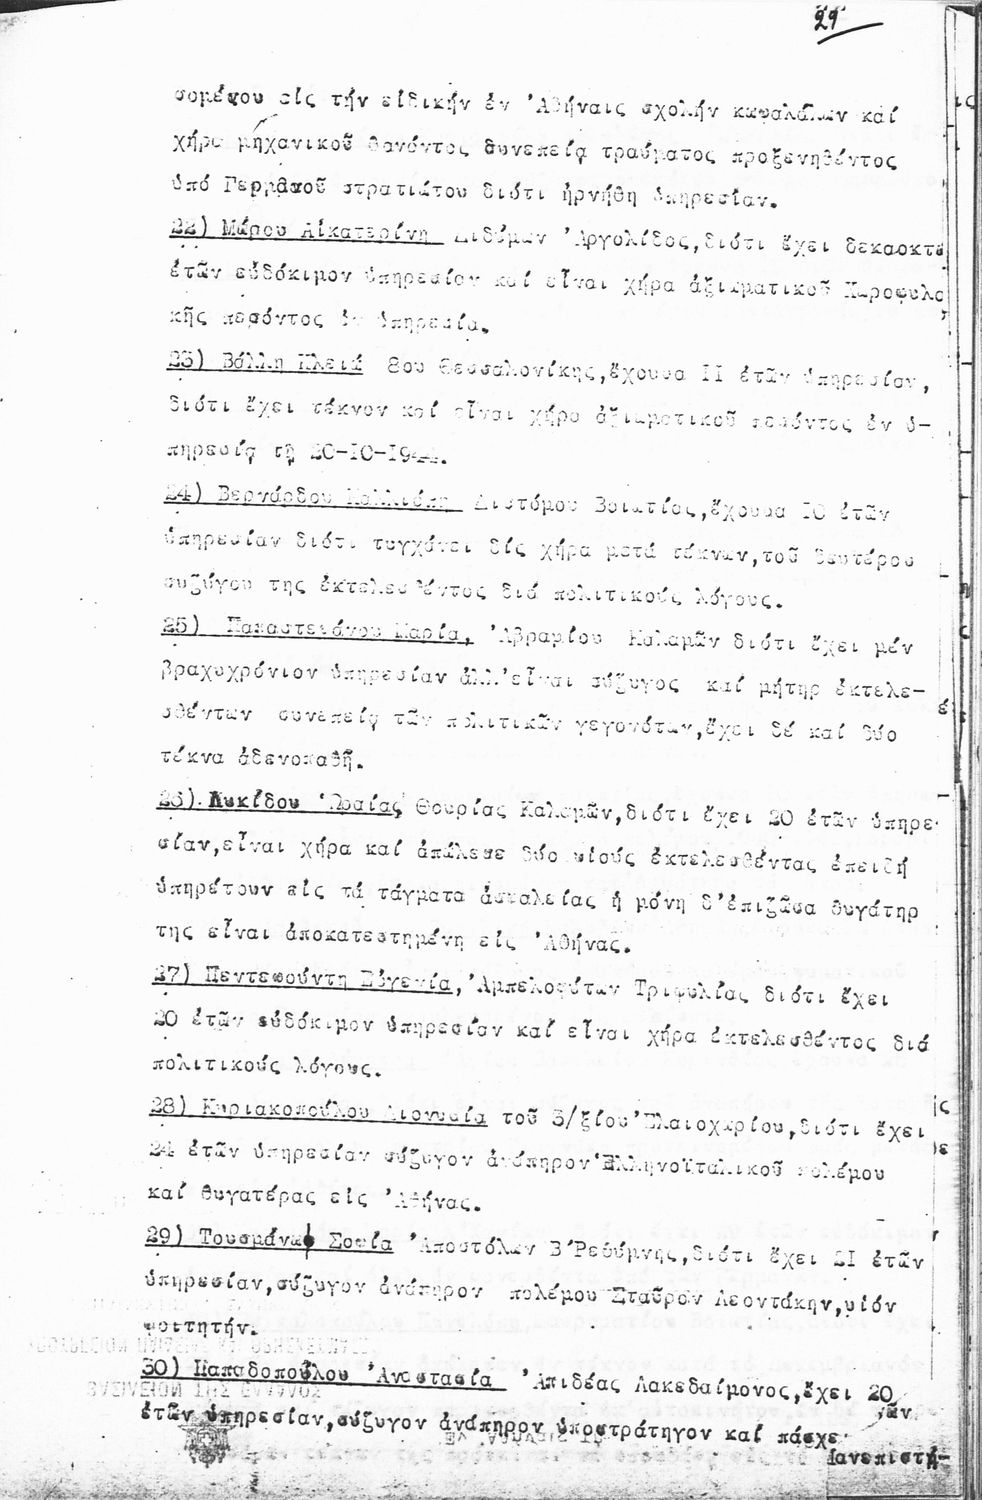 29
σομένου εἰς τήν εἰδικήν ἐν Ἀθήναις σχολήν κεφαλάίων καί
χήρα μηχανικοῦ θανόντος συνεπείᾳ τραύματος προξενηθέντος
ὑπό Γερμανοῦ στρατιώτου διότι ἠρνήθη ὑπηρεσίαν.
22) Μάρου Αἰκατερίνη Διδύμων Ἀργολίδος,διότι ἔχει δεκαοκτώ
ἐτῶν εὐδόκιμον ὑπηρεσίαν καί εἶναι χήρα ἀξιωματικοῦ Χωροφυλα
κῆς πεσόντος ἐν ὑπηρεσίᾳ.
23) Βάλλη Κλειώ 8ου Θεσσαλονίκης,ἔχουσα ΙΙ ἐτῶν ὑπηρεσίαν,
διότι ἔχει τέκνον καί εἶναι χήρα ἀξιωματικοῦ πεσόντος ἐν ὑ-
πηρεσίᾳ τῇ 20-Ι0-Ι944.
24) Βερνάρδου Καλλιόπη Διστόμου Βοιωτίας,ἔχουσα Ι0 ἐτῶν
ὑπηρεσίαν διότι τυγχάνει δίς χήρα μετά τέκνων,τοῦ δευτέρου
συζύγου της ἐκτελεσθέντος διά πολιτικούς λόγους.
25) Παπαστεφάνου Μαρία, Ἀβραμίου Καλαμῶν διότι ἔχει μέν
βραχυχρόνιον ὑπηρεσίαν ἀλλ'εἶναι σύζυγος καί μήτηρ ἐκτελε-
σθέντων συνεπείᾳ τῶν πολιτικῶν γεγονότων,ἔχει δέ καί δύο
τέκνα ἀδενοπαθῆ.
26) Λυκίδου Ὡραίας Θουρίας Καλαμῶν,διότι ἔχει 20 ἐτῶν ὑπηρε
σίαν,εἶναι χήρα καί ἀπώλεσε δύο υἱούς ἐκτελεσθέντας ἐπειδή
ὑπηρέτουν εἰς τά τάγματα ἀσφαλείας ἡ μόνη δ'ἐπιζῶσα θυγάτηρ
της εἶναι ἀποκατεστημένη εἰς Ἀθήνας.
27) Πεντεφούντη Εὐγενία,Ἀμπελοφύτων Τριφυλίας διότι ἔχει
20 ἐτῶν εὐδόκιμον ὑπηρεσίαν καί εἶναι χήρα ἐκτελεσθέντος διά
πολιτικούς λόγους.
28) Κυριακοπούλου Διονυσία τοῦ 3/ξίου Ἐλαιοχωρίου,διότι ἔχει
24 ἐτῶν ὑπηρεσίαν σύζυγον ἀνάπηρον Ἑλληνοϊταλικοῦ πολέμου
καί θυγατέρας εἰς Ἀθήνας.
29) Τουσμάνα Σοφία Ἀποστόλων Β Ρεθύμνης,διότι ἔχει 2Ι ἐτῶν
ὑπηρεσίαν,σύζυγον ἀνάπηρον πολέμου Σταῦρον Λεοντάκην,υἱόν
φοιτητήν.
30) Παπαδοπούλου Ἀναστασία Ἀπιδέας Λακεδαίμονος,ἔχει 20
ἐτῶν ὑπηρεσίαν,σύζυγον ἀνάπηρον ὑποστράτηγον καί πάσχε